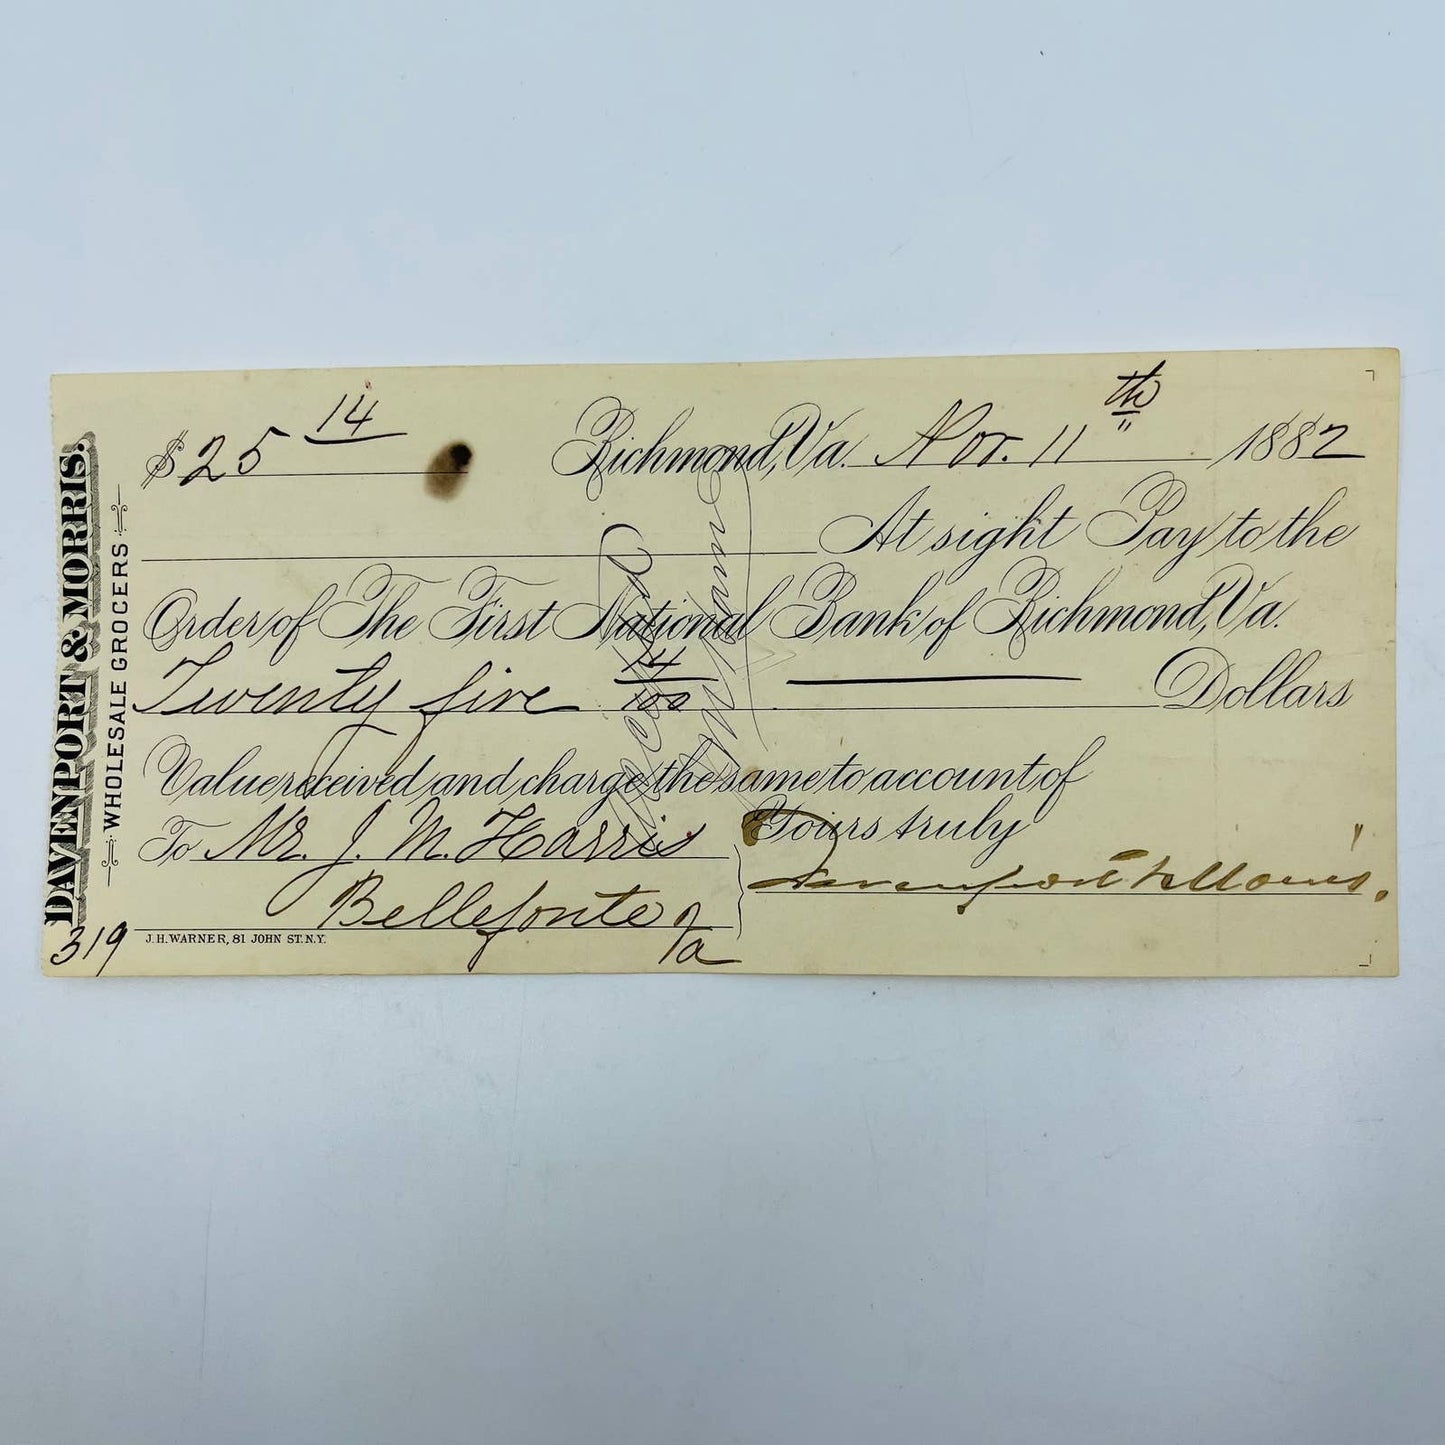 DAVENPORT & MORRIS.
WHOLESALE GROCERS
$25 14
Richmond, Va. Nov. 11th 1882
At sight Pay to the
Order of The First National Bank of Richmond, Va.
Twenty five 14/100 Dollars
Value received and charge the same to account of
To Mr. J. M. Harris
Yours truly
Davenport & Morris.
Bellefonte Va
319
J. H. WARNER, 81 JOHN ST. N.Y.
Accepted